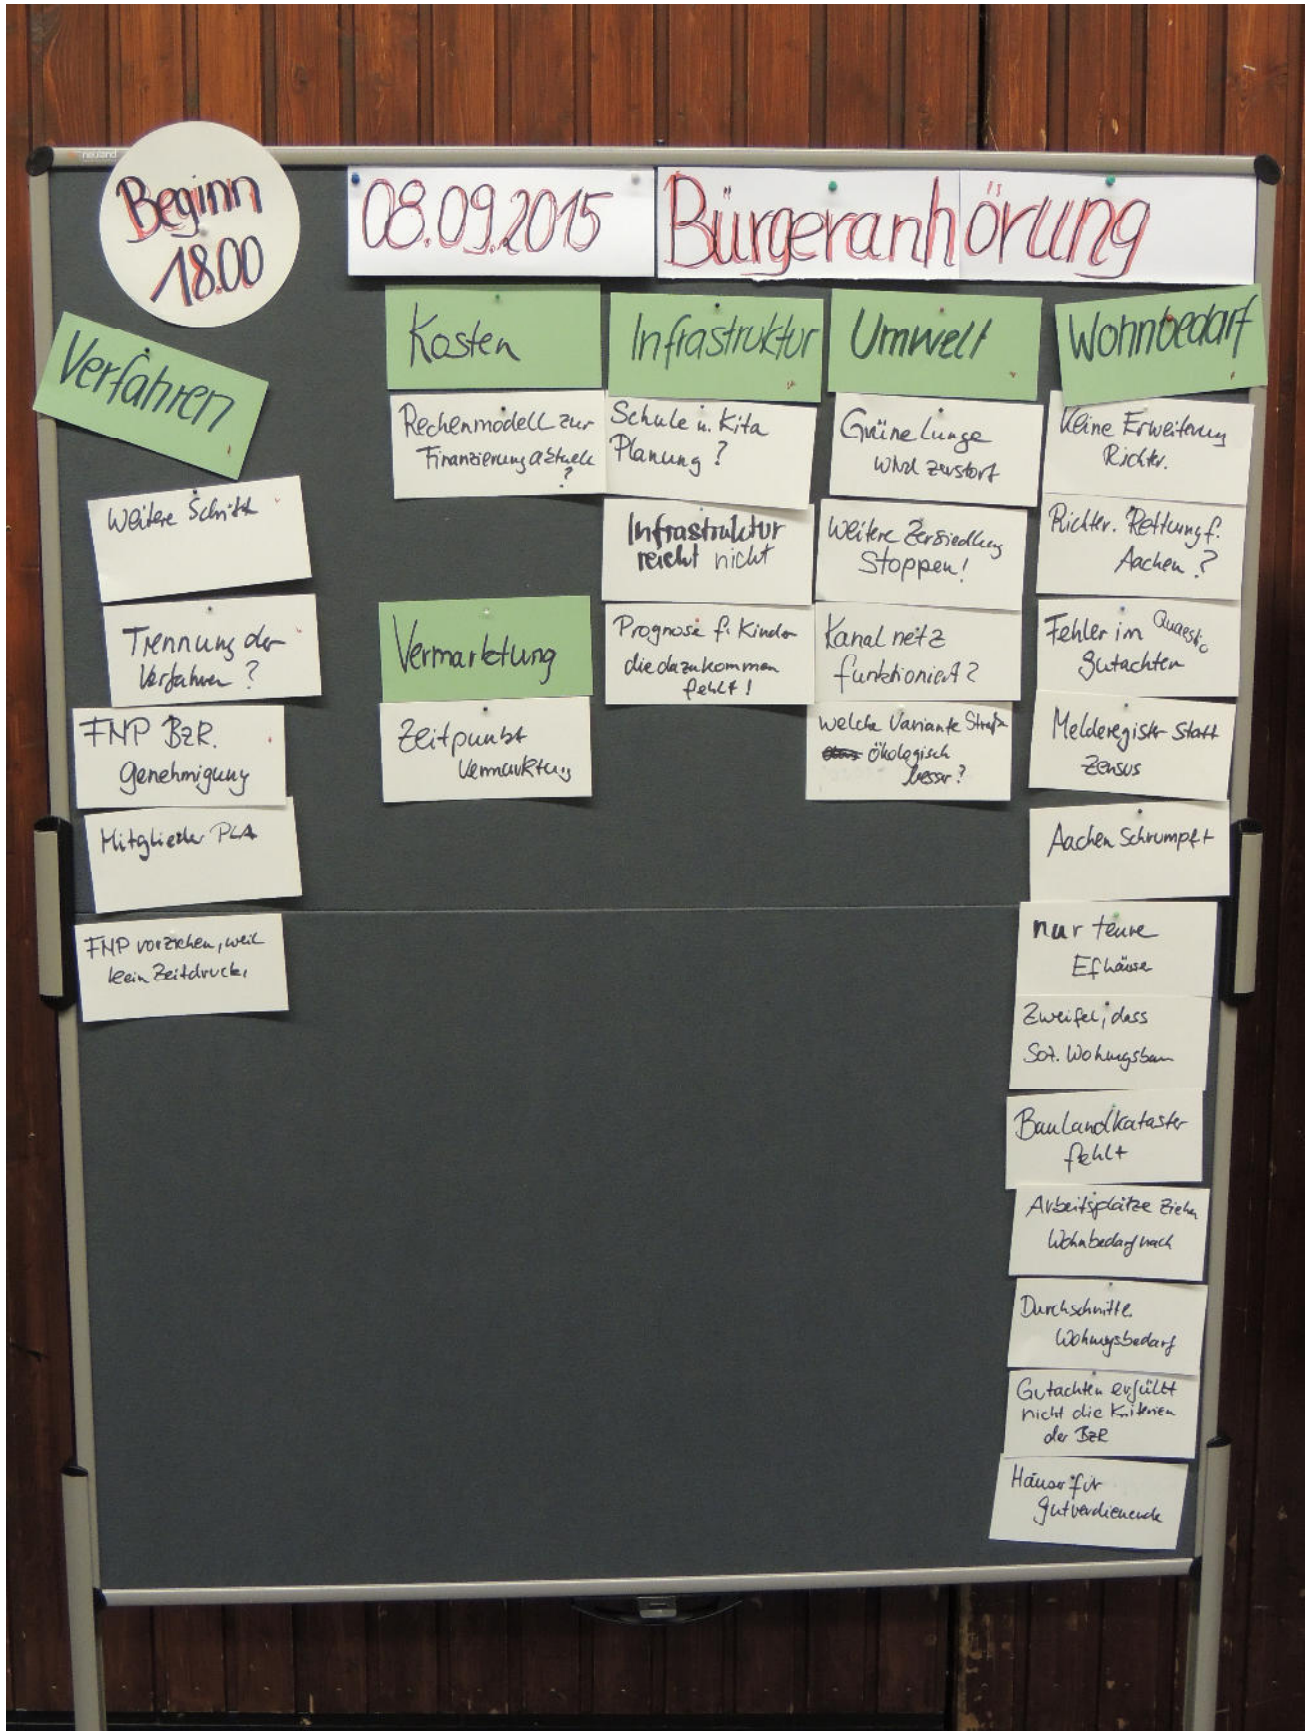 neuland
Beginn
18.00
08.09.2015
Bürgeranhörung
Verfahren
Weitere Schritte
Trennung der
Verfahren ?
FNP BzR.
Genehmigung
Mitglieder PLA
FNP vorziehen, weil
kein Zeitdruck
Kosten
Rechenmodell zur
Finanzierung aktuell
?
Vermarktung
Zeitpunkt
Vermarktung
Infrastruktur
Schule u. Kita
Planung ?
Infrastruktur
reicht nicht
Prognose f. Kinder
die dazukommen
fehlt !
Umwelt
Grüne Lunge
wird zerstört
Weitere Zersiedlung
Stoppen!
Kanalnetz
funktioniert ?
welche Variante Straße
ökologisch
besser ?
Wohnbedarf
Keine Erweiterung
Richter.
Richter. Rettung f.
Aachen ?
Fehler im Quaestio
gutachten
Melderegister statt
Zensus
Aachen Schrumpft
nur teure
Efhäuser
Zweifel, dass
Soz. Wohnungsbau
Baulandkataster
fehlt
Arbeitsplätze ziehen
Wohnbedarf nach
Durchschnittl.
Wohnungsbedarf
Gutachten erfüllt
nicht die Kriterien
der BzR
Häuser für
gutverdienende